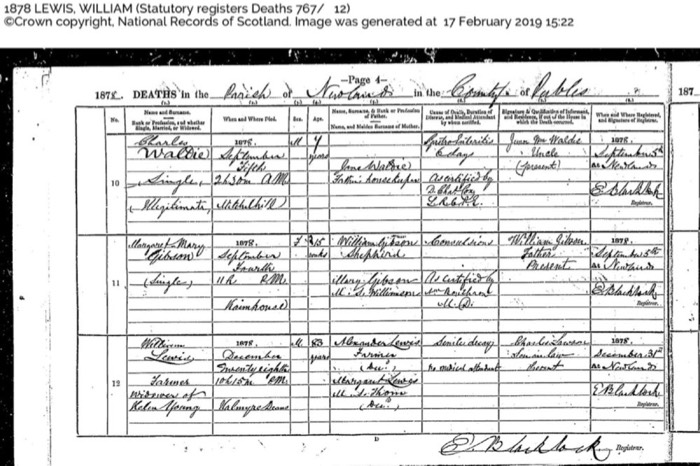 1878 LEWIS, WILLIAM (Statutory registers Deaths 767/ 12)
©Crown copyright, National Records of Scotland. Image was generated at 17 February 2019 15:22
—Page 4—
1878. DEATHS in the Parish of Newlands in the County of Peebles
187
No.
Name and Surname.
Rank or Profession, and whether Single, Married, or Widowed.
When and Where Died.
Sex.
Age.
Name, Surname, & Rank or Profession of Father.
Name, and Maiden Surname of Mother.
Cause of Death, Duration of Disease, and Medical Attendant by whom certified.
Signature & Qualification of Informant, and Residence, if out of the House in which the Death occurred.
When and Where Registered, and Signature of Registrar.
10
Charles
Waldie
Single
(Illegitimate)
1878.
September
Fifth
2h 30m A.M.
Mitchelhill
M
7
years
Jane Waldie
housekeeper
6 days
As certified by
Waldie
Uncle
(present)
1878.
September 5th
at Newlands
E Blacklock
Registrar.
11
Margaret Mary
Gibson
(Single)
1878.
September
Fourth
11h P.M.
Romanhouse
F
15
weeks
William Gibson
Shepherd
Mary Gibson
M.S. Williamson
Convulsions
As certified by
M.D.
William Gibson
Father
Present
1878.
September 5th
at Newlands
E Blacklock
Registrar.
12
William
Lewis
Farmer
Widower of
Helen Young
1878.
December
Twenty eighth
10h 15m P.M.
Halmyre Deans
M
83
years
Alexander Lewis
Farmer
(Dec.)
Margaret Lewis
M.S. Thom
(Dec.)
Senile decay
No medical attendant
Charles Lawson
Son in law
Present
1878.
December 31st
at Newlands
E Blacklock
Registrar.
E. Blacklock Registrar.